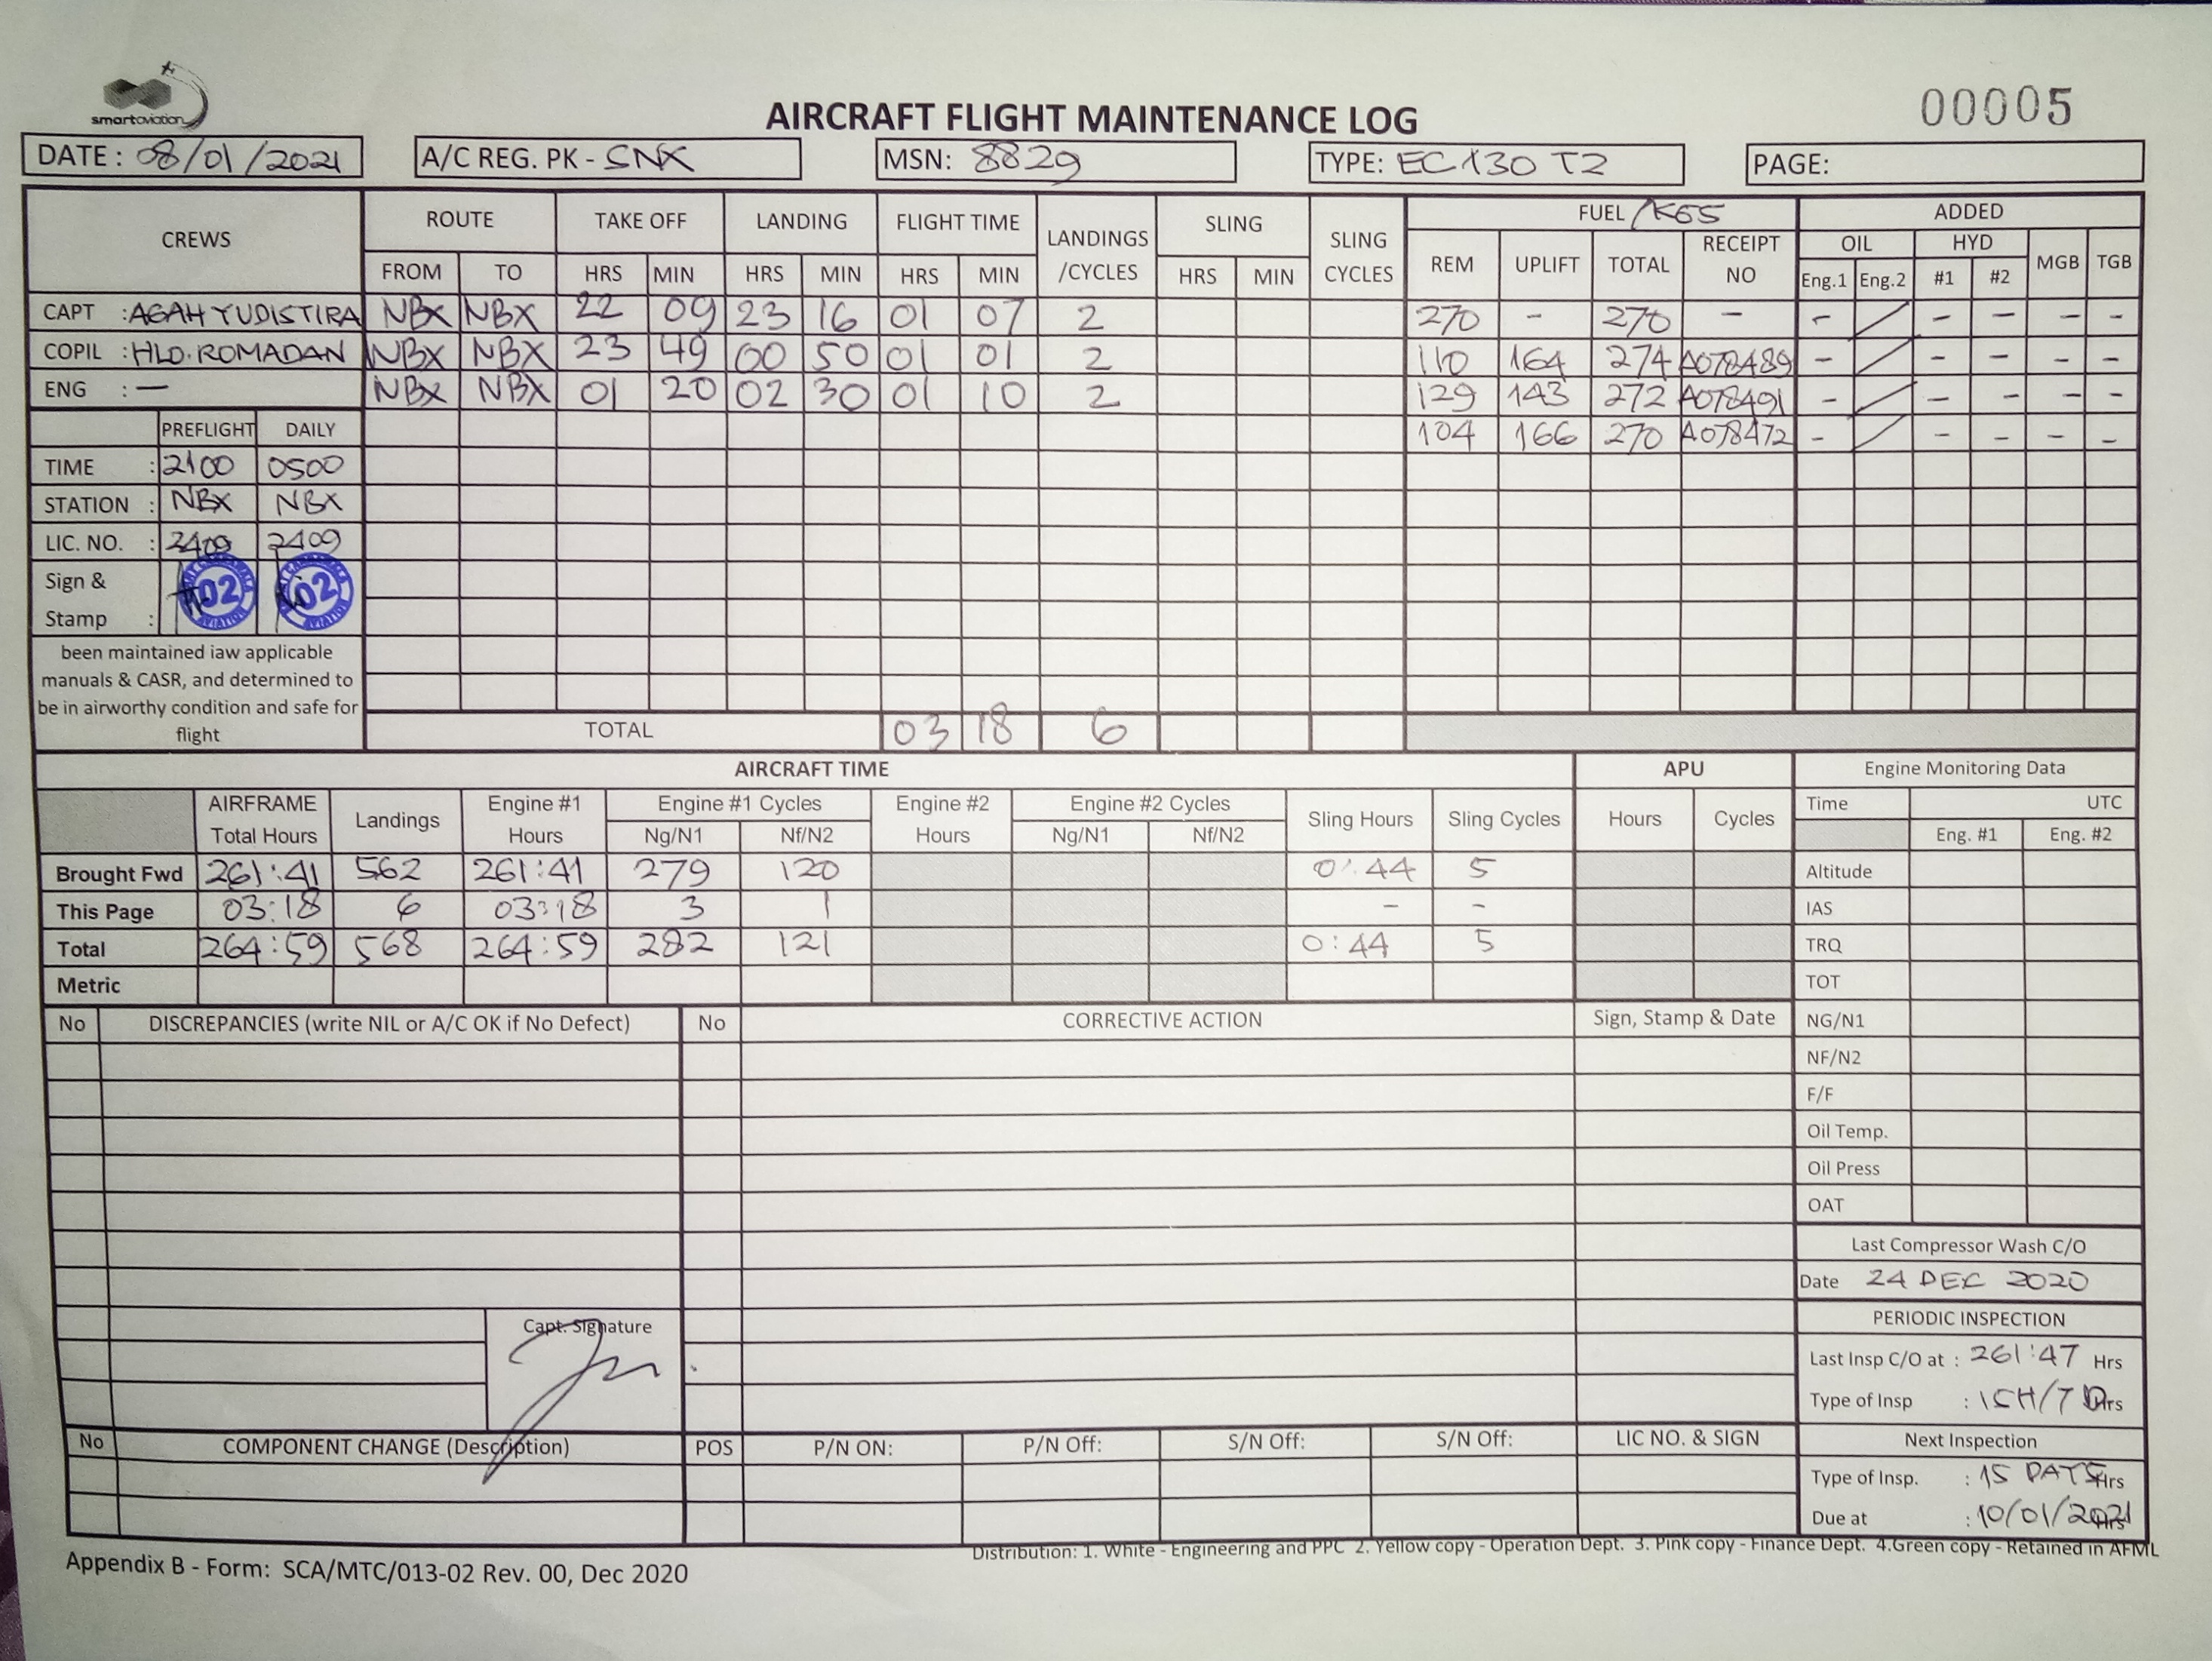 smartaviation
AIRCRAFT FLIGHT MAINTENANCE LOG
00005
DATE : 08/01/2021 A/C REG. PK - SNX MSN: 8829 TYPE: EC130 T2 PAGE:
CREWS ROUTE TAKE OFF LANDING FLIGHT TIME LANDINGS /CYCLES SLING SLING CYCLES FUEL /KGS ADDED
FROM TO HRS MIN HRS MIN HRS MIN HRS MIN REM UPLIFT TOTAL RECEIPT NO OIL HYD MGB TGB
Eng.1 Eng.2 #1 #2
CAPT : AGAH YUDISTIRA NBX NBX 22 09 23 16 01 07 2 270 - 270 - - / - - - -
COPIL : HLD. ROMADAN NBX NBX 23 49 00 50 01 01 2 110 164 274 A078489 - / - - - -
ENG : - NBX NBX 01 20 02 30 01 10 2 129 143 272 A078491 - / - - - -
104 166 270 A078472 - / - - - -
PREFLIGHT DAILY
TIME : 2100 0500
STATION : NBX NBX
LIC. NO. : 2409 2409
Sign & Stamp : 02 02
AVIATION AVIATION
been maintained iaw applicable
manuals & CASR, and determined to
be in airworthy condition and safe for
flight
TOTAL 03 18 6
AIRCRAFT TIME APU Engine Monitoring Data
AIRFRAME Total Hours Landings Engine #1 Hours Engine #1 Cycles Engine #2 Hours Engine #2 Cycles Sling Hours Sling Cycles Hours Cycles Time UTC
Ng/N1 Nf/N2 Ng/N1 Nf/N2 Eng. #1 Eng. #2
Brought Fwd 261:41 562 261:41 279 120 0:44 5 Altitude
This Page 03:18 6 03:18 3 1 - - IAS
Total 264:59 568 264:59 282 121 0:44 5 TRQ
Metric TOT
No DISCREPANCIES (write NIL or A/C OK if No Defect) No CORRECTIVE ACTION Sign, Stamp & Date NG/N1
NF/N2
F/F
Oil Temp.
Oil Press
OAT
Last Compressor Wash C/O
Date 24 DEC 2020
Capt. Signature
PERIODIC INSPECTION
Last Insp C/O at : 261:47 Hrs
Type of Insp : Hrs
No COMPONENT CHANGE (Description) POS P/N ON: P/N Off: S/N Off: S/N Off: LIC NO. & SIGN Next Inspection
Type of Insp. : 15 DAYS Hrs
Due at : 10/01/2021 Hrs
Distribution: 1. White - Engineering and PPC 2. Yellow copy - Operation Dept. 3. Pink copy - Finance Dept. 4.Green copy - Retained in AFML
Appendix B - Form: SCA/MTC/013-02 Rev. 00, Dec 2020